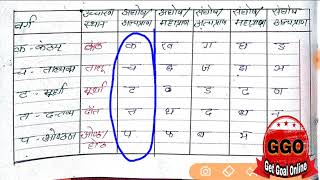 वर्ग उच्चारण स्थान अघोष/अल्पप्राण अघोष/महाप्राण सघोष/अल्पप्राण सघोष/महाप्राण सघोष
क-कंठ्य कंठ क ख ग घ ङ
च-तालव्य तालू च छ ज झ ञ
ट-मूर्धा मूर्धा ट ठ ड ढ ण
त-दन्तव्य दाँत त थ द ध न
प-ओष्ठ्य ओष्ठ/होठ प फ ब भ
GGO
Get Goal Online